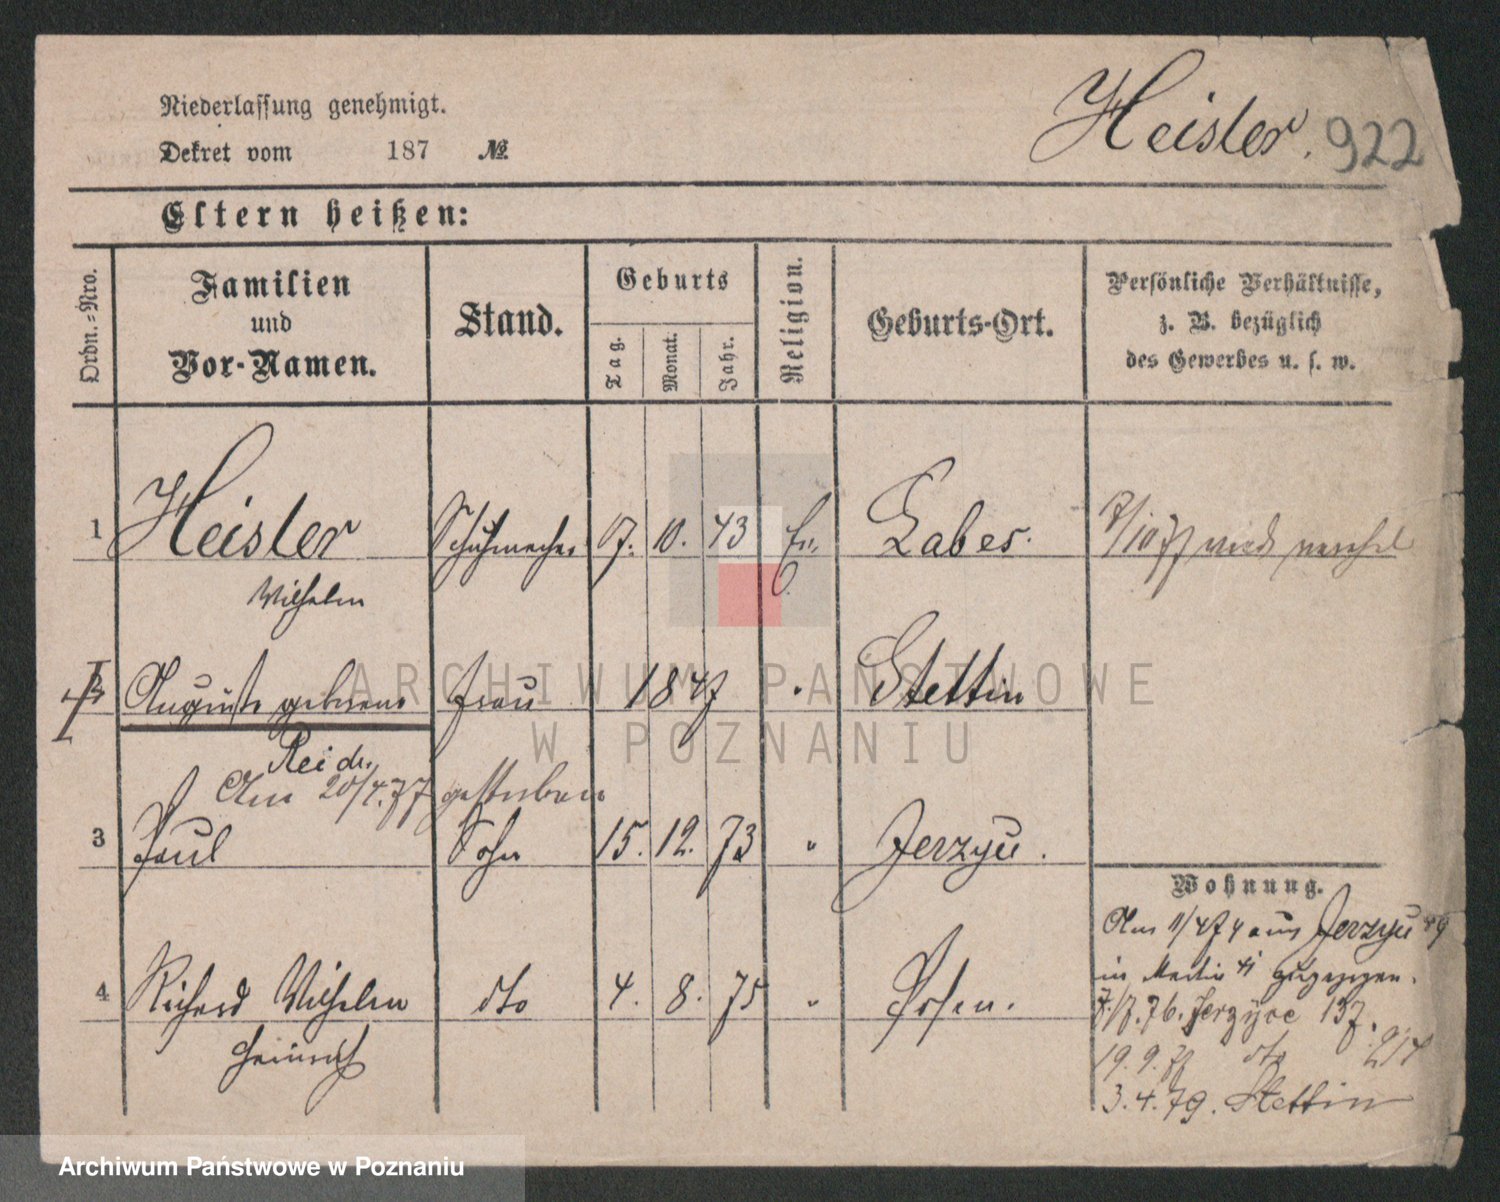 Niederlassung genehmigt.
Dekret vom 187 №
Heisler. 922
Eltern heißen:
Ordn.-Nro.
Familien
und
Vor-Namen.
Stand.
Geburts
Tag.
Monat.
Jahr.
Religion.
Geburts-Ort.
Persönliche Verhältnisse,
z. B. bezüglich
des Gewerbes u. s. w.
1 Heisler Schuhmacher 17. 10. 43 Ev. Labes.
Wilhelm
Auguste geborene Frau 1847 " Stettin
Reich.
Am 20/4.77 gestorben
3 Paul Sohn 15. 12. 73 " Jerzyce.
Wohnung.
Am 11/4 74 aus Jerzyce 49
in 41 zugezogen.
4 Richard Wilhelm dto 4. 8. 75 " Posen.
7./7. 76. Jerzyce 137.
Heinrich
19. 9. dto 214
3. 4. 79. Stettin
ARCHIWUM PAŃSTWOWE
W POZNANIU
Archiwum Państwowe w Poznaniu